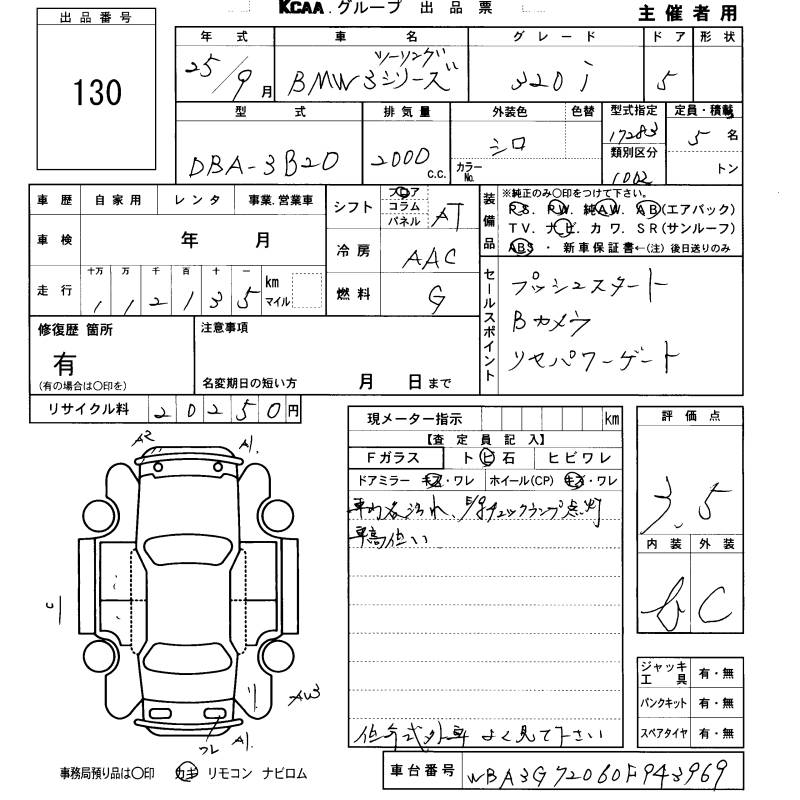 KCAA.グループ 出品票
主催者用
出品番号
130
年式 車名 グレード ドア 形状
25/9月 BMW3シリーズ ツーリング 320i 5
型式 排気量 外装色 色替 型式指定 定員・積載
DBA-3B20 2000 C.C. シロ カラーNo. 17283 5名
類別区分
1002 トン
車歴 自家用 レンタ 事業.営業車
車検 年 月
走行 十万 万 千 百 十 一
1 1 2 1 3 5 km マイル
シフト フロア コラム パネル AT
冷房 AAC
燃料 G
装備品
※純正のみ〇印をつけて下さい。
PS. PW. 純AW. AB(エアバック)
TV. ナビ. カワ. SR(サンルーフ)
ABS ・ 新車保証書←(注) 後日送りのみ
セールスポイント
プッシュスタート
Bカメラ
リヤパワーゲート
修復歴 箇所
有
(有の場合は〇印を)
注意事項
名変期日の短い方 月 日まで
リサイクル料 20250円
現メーター指示 km
【査定員記入】
Fガラス ト ビ 石 ヒビワレ
ドアミラー キズ・ワレ ホイール(CP) キズ・ワレ
車内各汚れ、E/gチェックランプ点灯
車高低い
よく見て下さい
評価点
3.5
内装 外装
C
ジャッキ工具 有・無
パンクキット 有・無
スペアタイヤ 有・無
A2 A1.
AW3
A1.
事務局預り品は〇印 カギ リモコン ナビロム
車台番号 WBA3G72060F943969